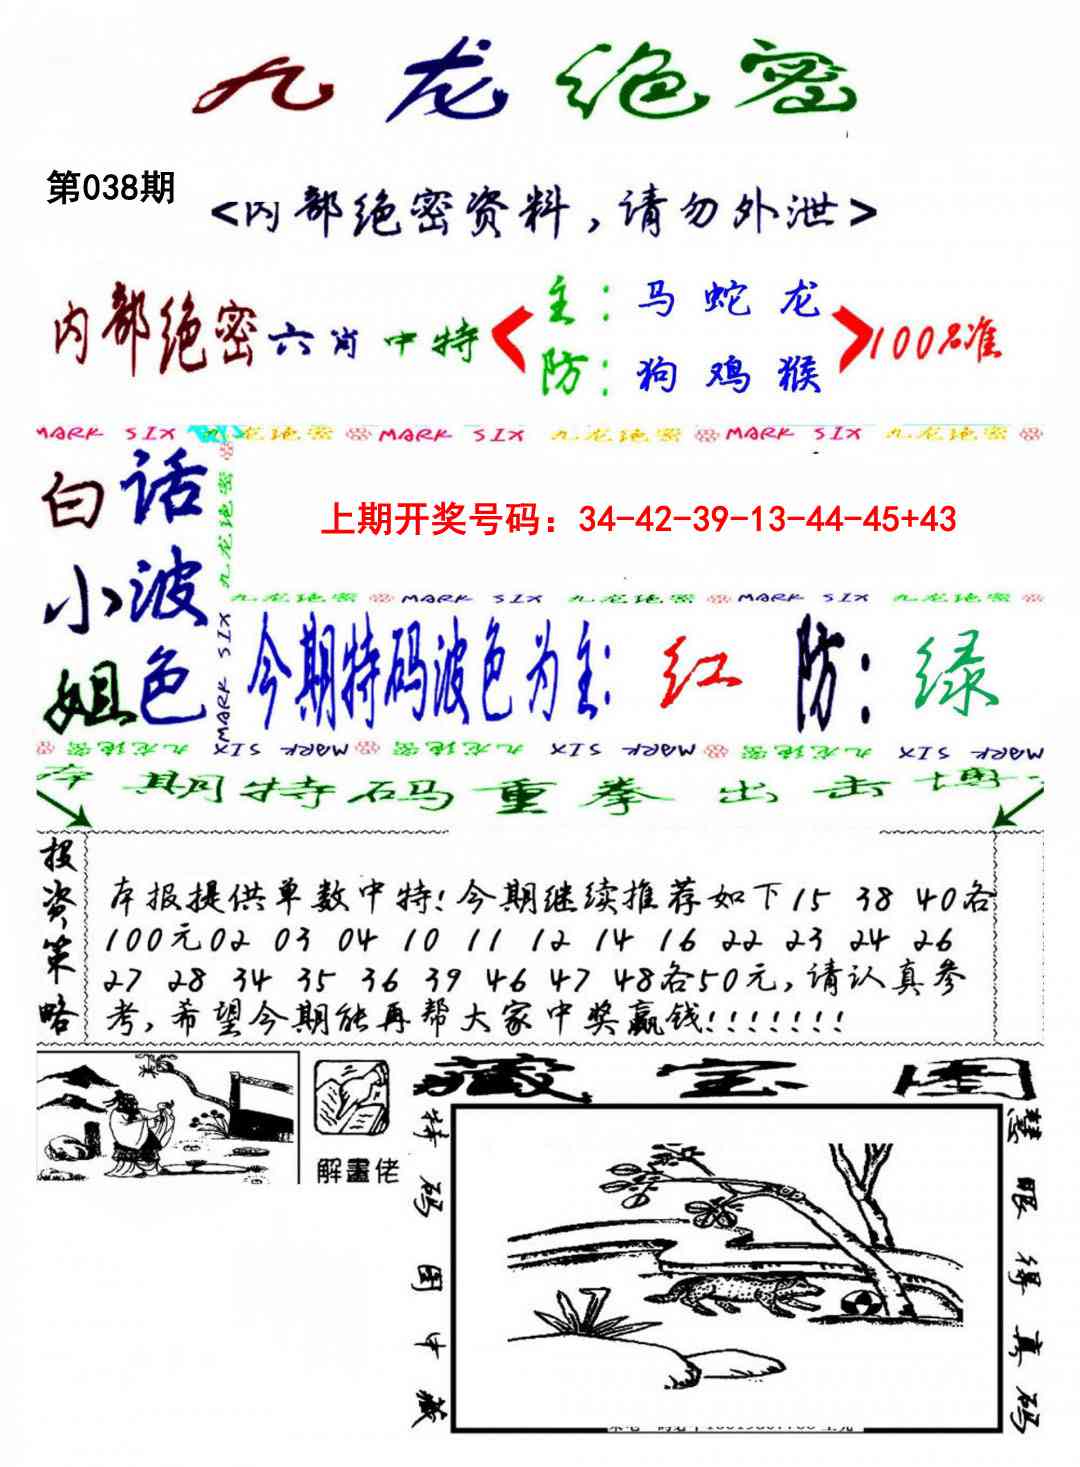 九龙绝密
第038期
<内部绝密资料，请勿外泄>
内部绝密六肖中特
主：马 蛇 龙
防：狗 鸡 猴
100%准
MARK SIX 九龙绝密 MARK SIX 九龙绝密 MARK SIX 九龙绝密
白话
小波
姐色
九龙绝密
MARK SIX
上期开奖号码：34-42-39-13-44-45+43
九龙绝密 MARK SIX 九龙绝密 MARK SIX 九龙绝密
今期特码波色为主：红 防：绿
九龙绝密 MARK SIX 九龙绝密 MARK SIX 九龙绝密 MARK SIX
本期特码重拳出击博
投资策略
本报提供单数中特!今期继续推荐如下15 38 40各
100元02 03 04 10 11 12 14 16 22 23 24 26
27 28 34 35 36 39 46 47 48各50元,请认真参
考,希望今期能再帮大家中奖赢钱!!!!!!!
解畫佬
藏宝图
特码图中藏
慧眼得真码